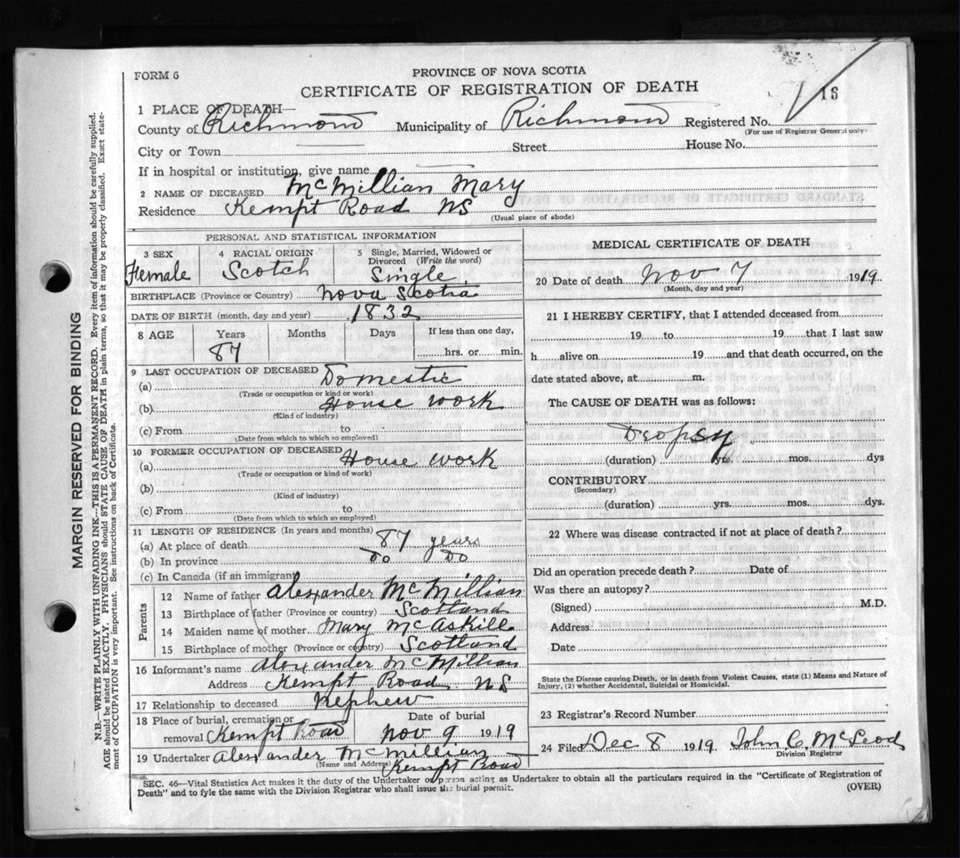 FORM 6
PROVINCE OF NOVA SCOTIA
CERTIFICATE OF REGISTRATION OF DEATH
16
1 PLACE OF DEATH—
County of Richmond Municipality of Richmond Registered No.
(For use of Registrar General only)
City or Town Street House No.
If in hospital or institution, give name
2 NAME OF DECEASED McMillian Mary
Residence Kempt Road NS
(Usual place of abode)
PERSONAL AND STATISTICAL INFORMATION
3 SEX 4 RACIAL ORIGIN 5 Single, Married, Widowed or Divorced (Write the word)
Female Scotch Single
BIRTHPLACE (Province or Country) Nova Scotia
DATE OF BIRTH (month, day and year) 1832
8 AGE Years Months Days If less than one day,
87 hrs. or min.
9 LAST OCCUPATION OF DECEASED
(a) Domestic
(Trade or occupation or kind or work)
(b) House Work
(Kind of industry)
(c) From to
(Date from to which so employed)
10 FORMER OCCUPATION OF DECEASED
(a) House Work
(Trade or occupation or kind of work)
(b)
(Kind of industry)
(c) From to
(Date from to which so employed)
11 LENGTH OF RESIDENCE (In years and months)
(a) At place of death 87 years
(b) In province Do Do
(c) In Canada (if an immigrant)
Parents
12 Name of father Alexander McMillian
13 Birthplace of father (Province or country) Scotland
14 Maiden name of mother Mary McAskill
15 Birthplace of mother (Province or country) Scotland
16 Informant's name Alexander McMillian
Address Kempt Road NS
17 Relationship to deceased Nephew
18 Place of burial, cremation or removal Kempt Road Date of burial Nov 9 1919
19 Undertaker Alexander McMillian
(Name and Address) Kempt Road
MEDICAL CERTIFICATE OF DEATH
20 Date of death Nov 7 1919.
(Month, day and year)
21 I HEREBY CERTIFY, that I attended deceased from
19 to 19 that I last saw
h alive on 19 and that death occurred, on the
date stated above, at m.
The CAUSE OF DEATH was as follows:
Dropsy
(duration) yrs. mos. dys
CONTRIBUTORY
(Secondary)
(duration) yrs. mos. dys.
22 Where was disease contracted if not at place of death?
Did an operation precede death? Date of
Was there an autopsy?
(Signed) M.D.
Address
Date
State the Disease causing Death, or in death from Violent Causes, state (1) Means and Nature of
Injury, (2) whether Accidental, Suicidal or Homicidal.
23 Registrar's Record Number
24 Filed Dec 8 1919. John C. McLeod
Division Registrar
SEC. 46—Vital Statistics Act makes it the duty of the Undertaker or person acting as Undertaker to obtain all the particulars required in the "Certificate of Registration of
Death" and to fyle the same with the Division Registrar who shall issue the burial permit.
(OVER)
MARGIN RESERVED FOR BINDING
N.B.—WRITE PLAINLY WITH UNFADING INK—THIS IS A PERMANENT RECORD. Every item of information should be carefully supplied.
AGE should be stated EXACTLY. PHYSICIANS should STATE CAUSE OF DEATH in plain terms, so that it may be properly classified. Exact state-
ment of OCCUPATION is very important. See instructions on back of Certificate.